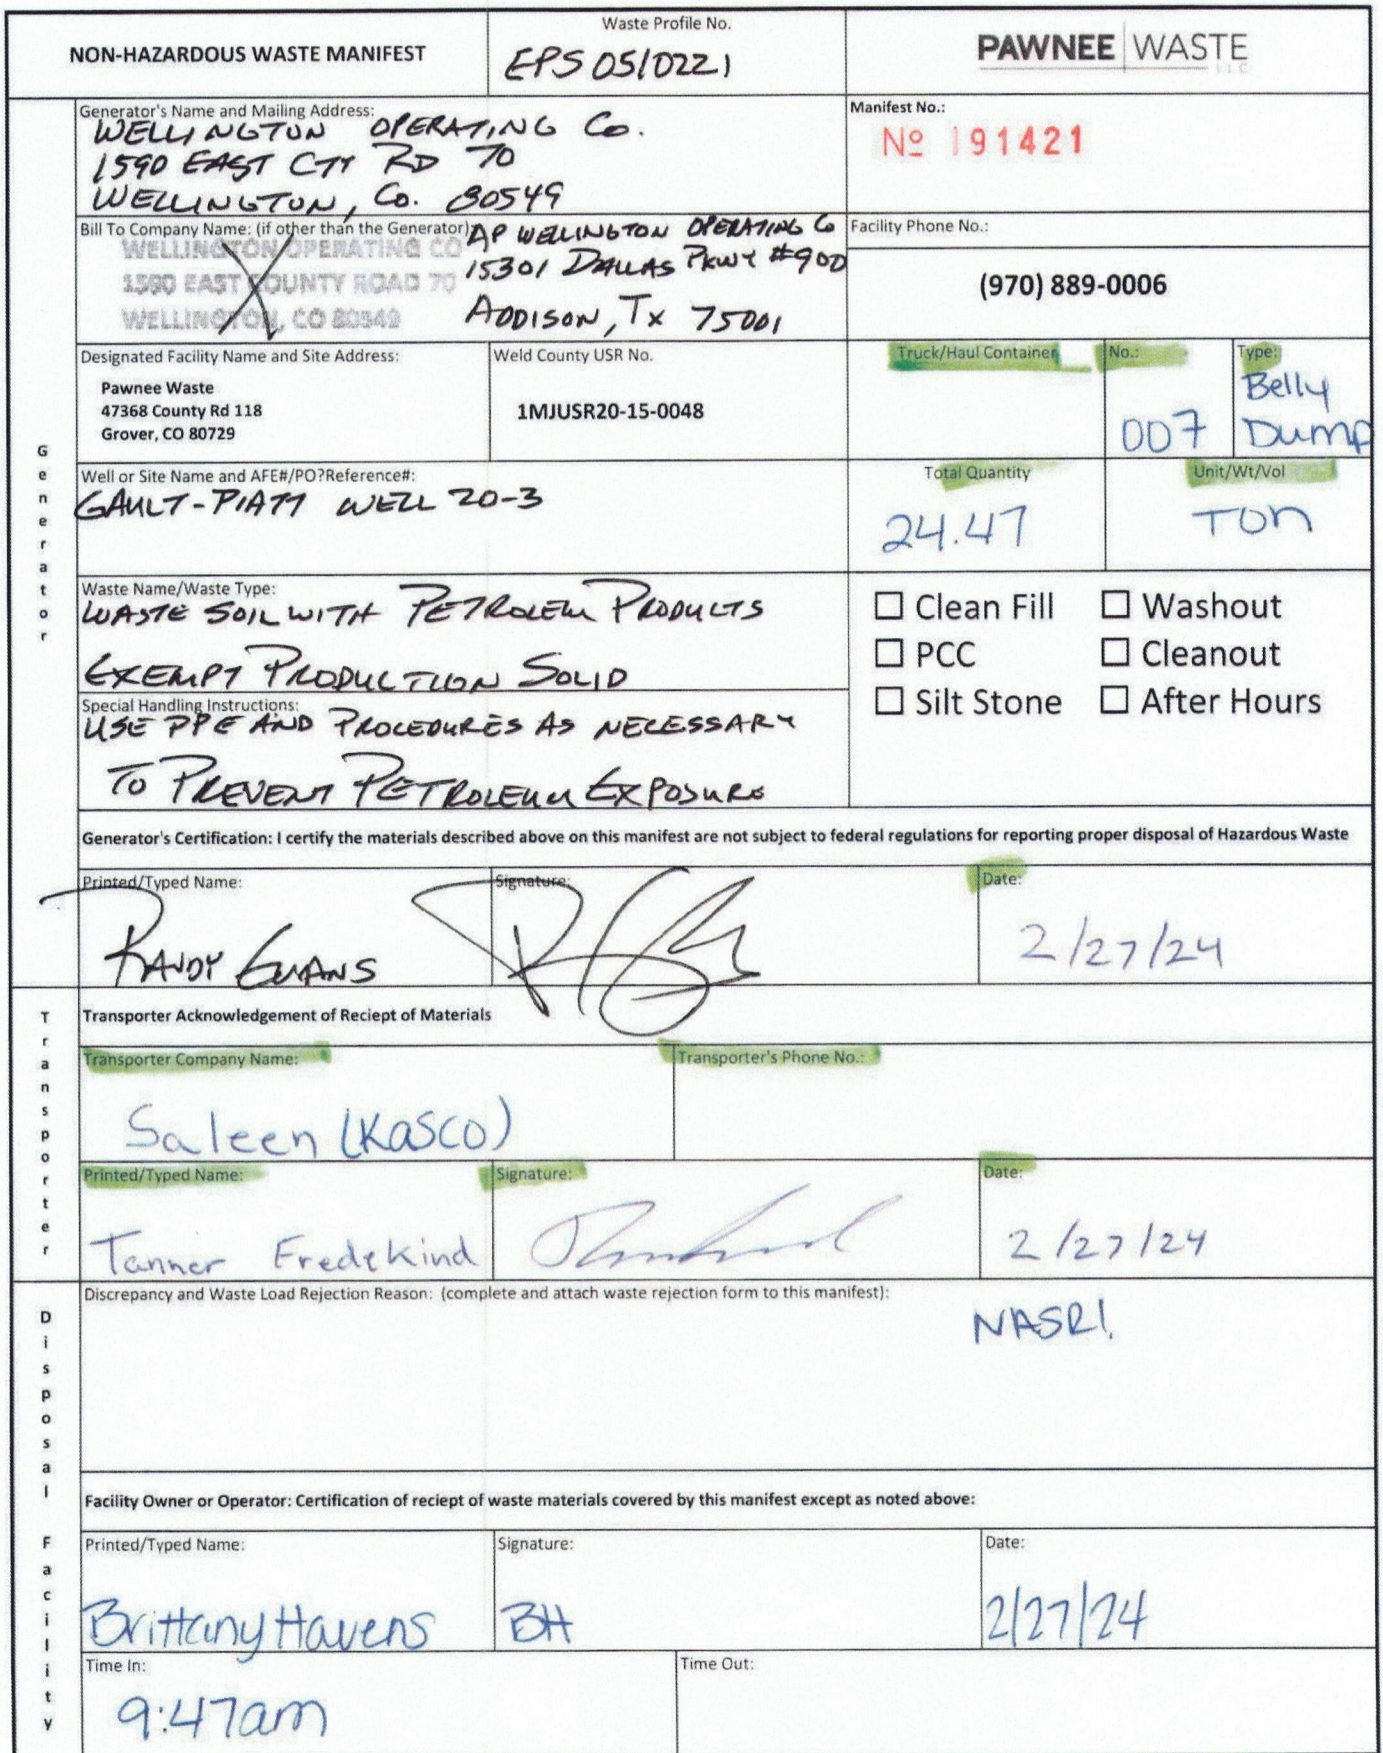 NON-HAZARDOUS WASTE MANIFEST
Waste Profile No.
EPS 0510221
PAWNEE | WASTE
LLC
Generator's Name and Mailing Address:
WELLINGTON OPERATING Co.
1590 EAST CTY RD 70
WELLINGTON, Co. 80549
Manifest No.:
Nº 191421
Bill To Company Name: (if other than the Generator)
WELLINGTON OPERATING CO
1590 EAST COUNTY ROAD 70
WELLINGTON, CO 80549
AP WELLINGTON OPERATING Co
15301 DALLAS PKWY #900
ADDISON, TX 75001
Facility Phone No.:
(970) 889-0006
Designated Facility Name and Site Address:
Pawnee Waste
47368 County Rd 118
Grover, CO 80729
Weld County USR No.
1MJUSR20-15-0048
Truck/Haul Container
No.:
007
Type:
Belly
Dump
Generator
Well or Site Name and AFE#/PO?Reference#:
GAULT-PIATT WELL 20-3
Total Quantity
24.47
Unit/Wt/Vol
TON
Waste Name/Waste Type:
WASTE SOIL WITH PETROLEUM PRODUCTS
EXEMPT PRODUCTION SOLID
☐ Clean Fill ☐ Washout
☐ PCC ☐ Cleanout
☐ Silt Stone ☐ After Hours
Special Handling Instructions:
USE PPE AND PROCEDURES AS NECESSARY
TO PREVENT PETROLEUM EXPOSURE
Generator's Certification: I certify the materials described above on this manifest are not subject to federal regulations for reporting proper disposal of Hazardous Waste
Printed/Typed Name:
RANDY EVANS
Signature:
Date:
2/27/24
Transporter
Transporter Acknowledgement of Reciept of Materials
Transporter Company Name:
Saleen (KASCO)
Transporter's Phone No.:
Printed/Typed Name:
Tanner Fredekind
Signature:
Date:
2/27/24
Disposal Facility
Discrepancy and Waste Load Rejection Reason: (complete and attach waste rejection form to this manifest):
Facility Owner or Operator: Certification of reciept of waste materials covered by this manifest except as noted above:
Printed/Typed Name:
Brittany Havens
Signature:
BH
Date:
2/27/24
Time In:
9:47am
Time Out: